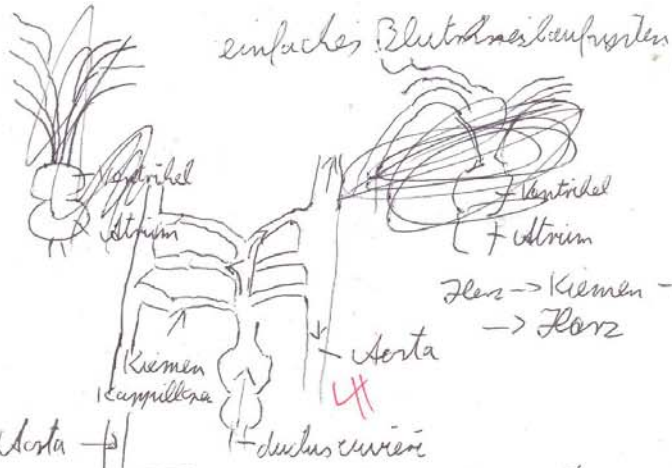 einfaches Blutkreislaufsystem
Ventrikel
Atrium
Ventrikel
Atrium
Herz -> Kiemen -
-> Herz
Kiemen
Aorta
Aorta
ductus cuvieri